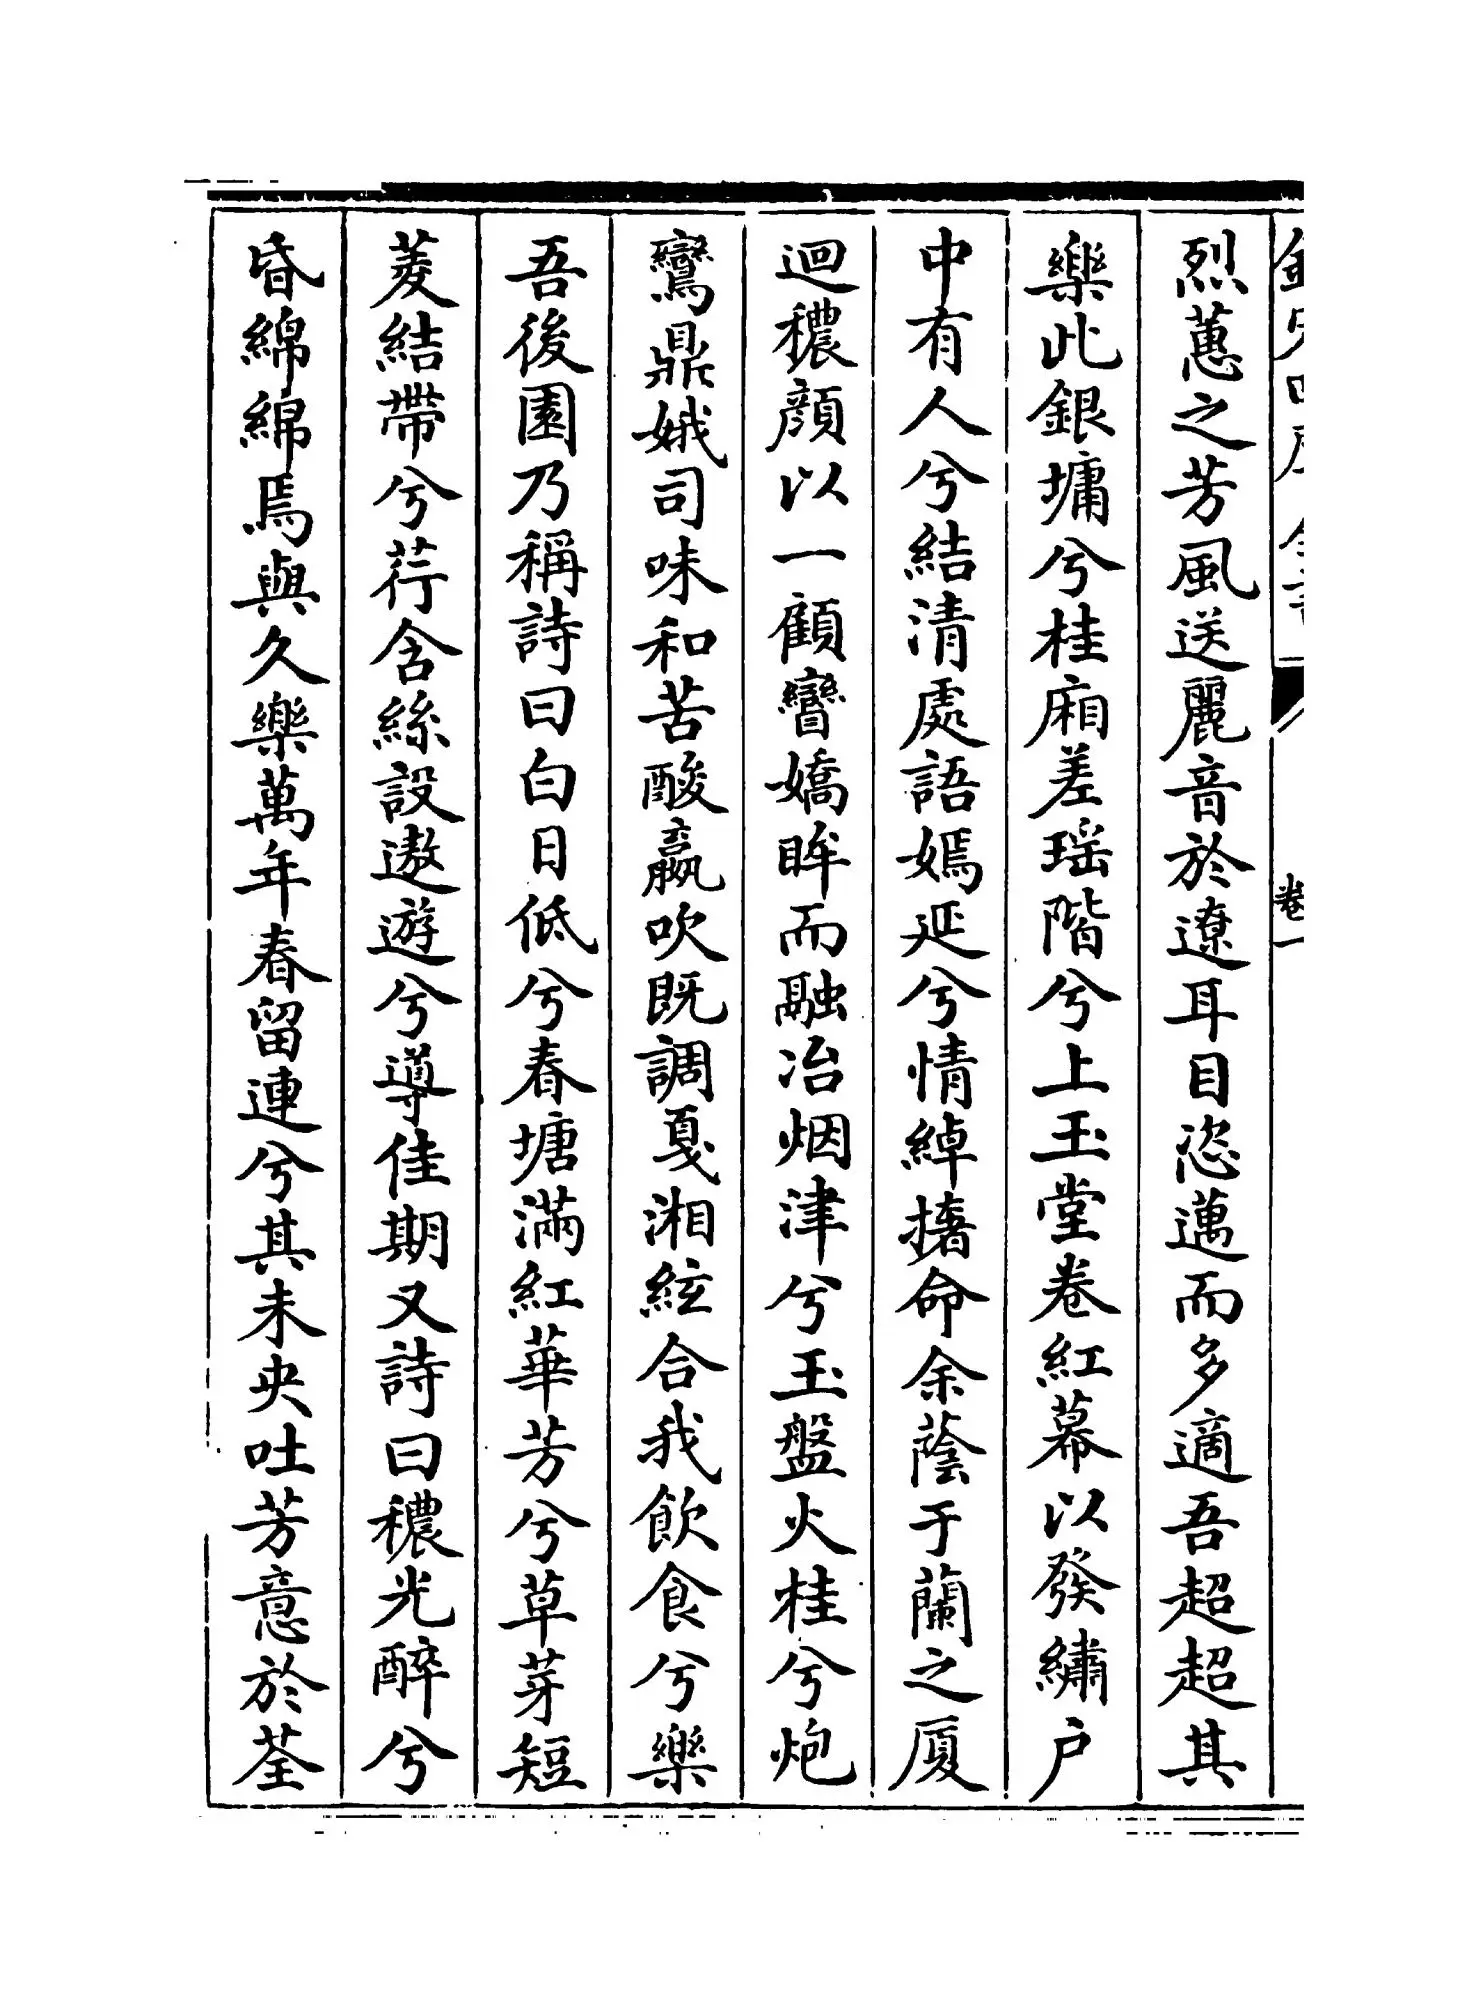 欽定四庫全書
卷一
烈蕙之芳風送麗音於遼耳目恣邁而多適吾超超其
樂此銀墉兮桂廂差瑶階兮上玉堂卷紅幕以發繡户
中有人兮結清處語嫣延兮情綽撦命余蔭于蘭之厦
迴穠顔以一顧矕嬌眸而融冶烟津兮玉盤火桂兮炮
鸞鼎娥司味和苦酸嬴吹既調戛湘絃合我飲食兮樂
吾後園乃稱詩曰白日低兮春塘滿紅華芳兮草芽短
菱結帶兮荇含絲設遨遊兮導佳期又詩曰穠光醉兮
昏綿綿焉與久樂萬年春留連兮其未央吐芳意於荃